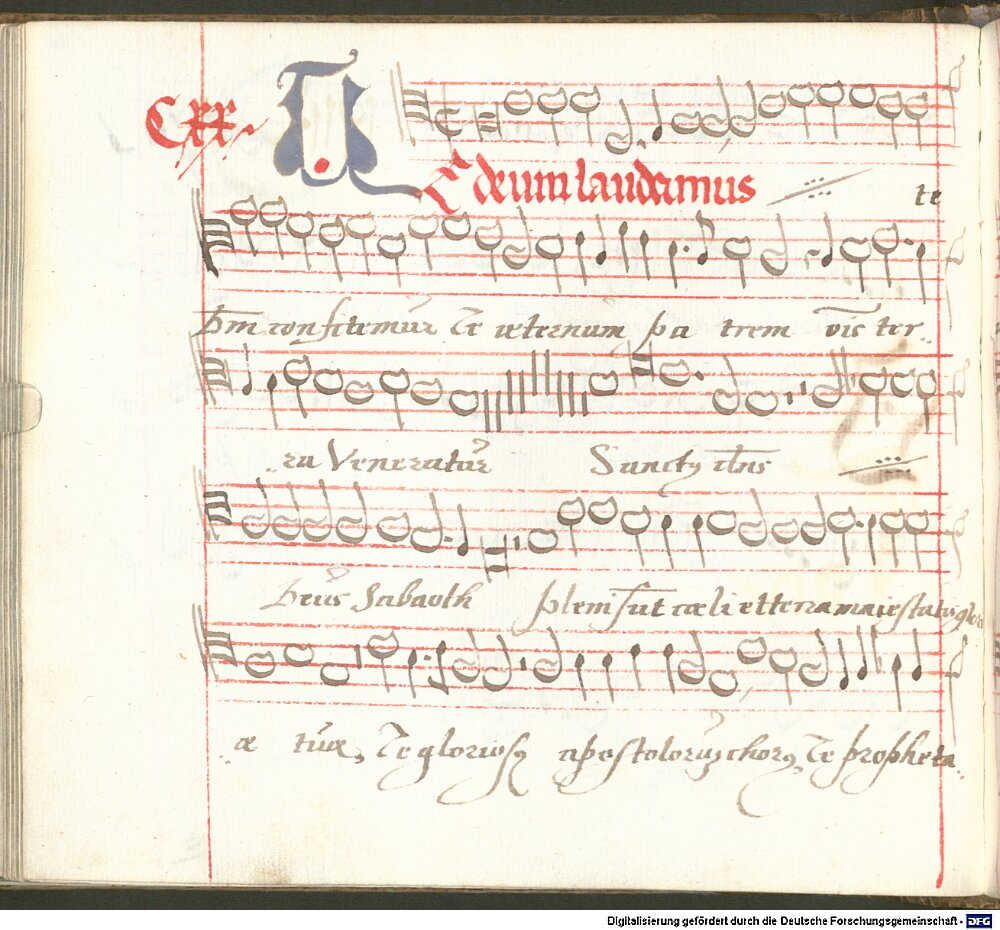 Cxx.
TE deum laudamus te
Dn̄m confitemur Te æternum pa trem oīs ter
ra Veneratur Sanctꝰ dn̄s
Deus Sabaoth pleni sūt cœli et terra maiestatis glori
æ tuæ, Te gloriosꝰ apostolorum chorꝰ, Te propheta
Digitalisierung gefördert durch die Deutsche Forschungsgemeinschaft - DFG